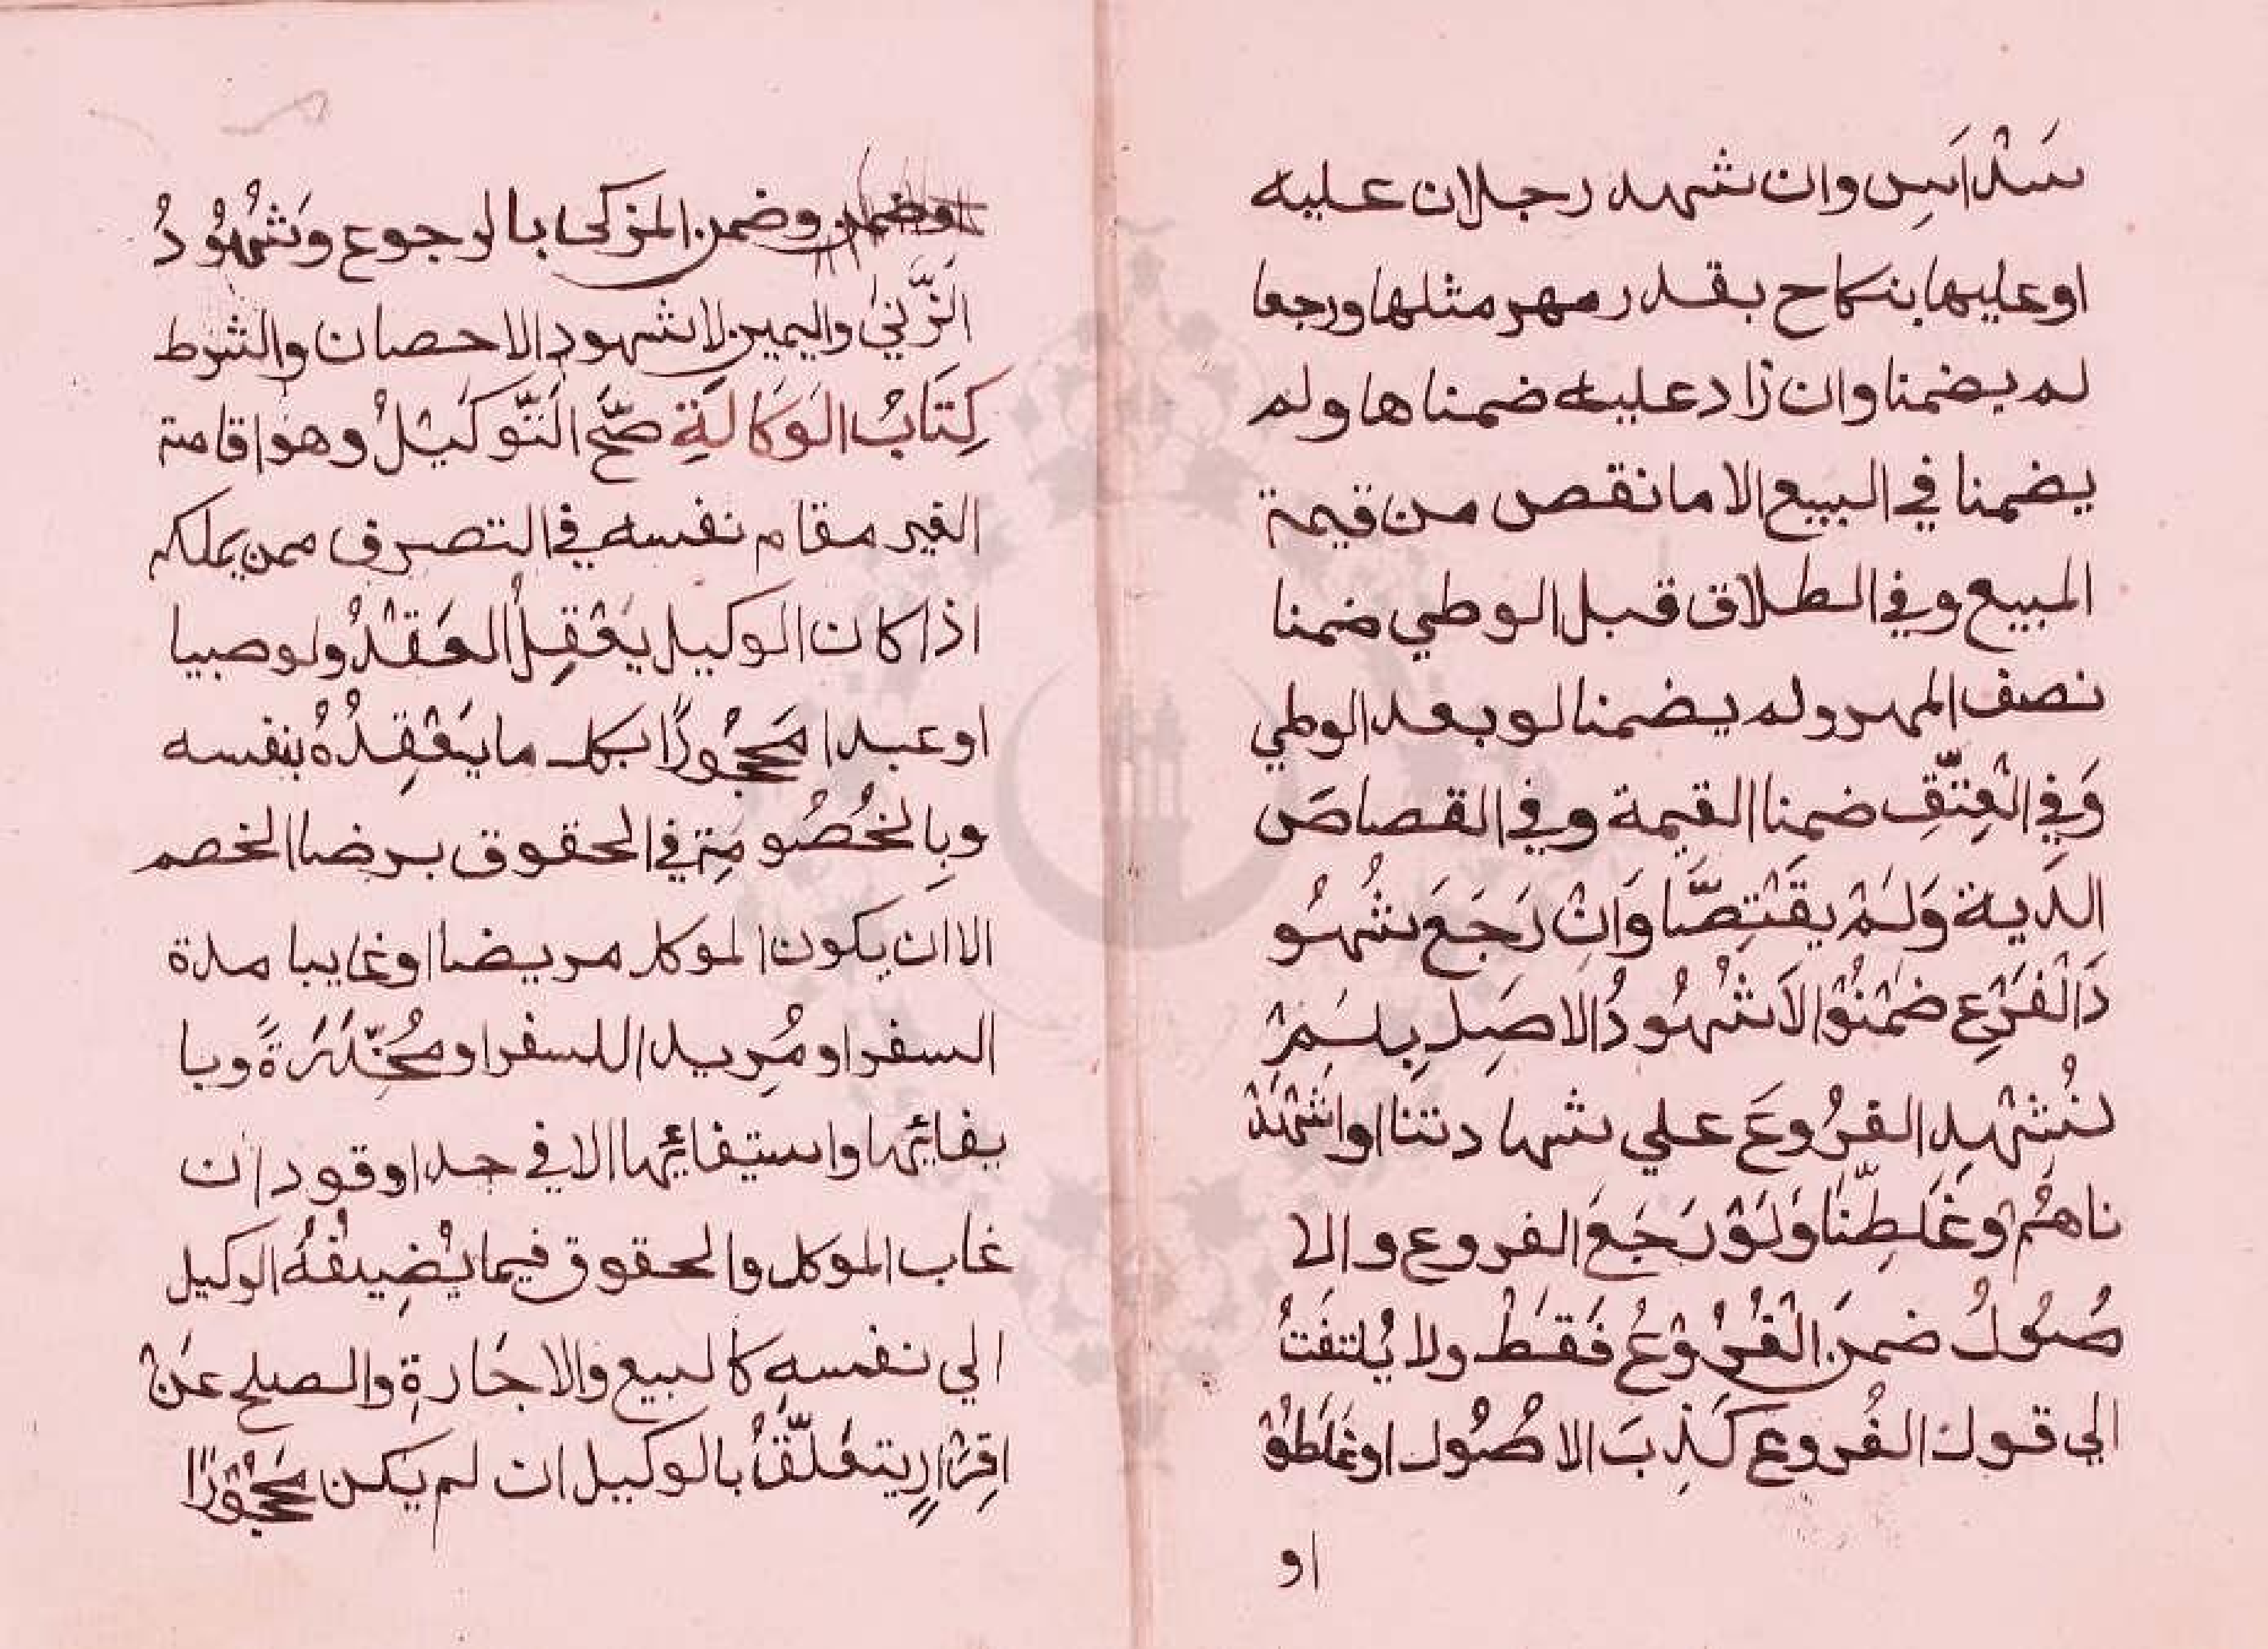 سَدْاسِ وان شهد رجلان عليه
او عليها بنكاح بقدر مهر مثلها ورجعا
لم يضمنا وان زاد عليه ضمناها ولم
يضمنا في البيع الا ما نقص من قيمة
المبيع وفي الطلاق قبل الوطي ضمنا
نصف المهر ولم يضمنا لو بعد الوطي
وَفِي الْعِتْقِ ضمنا القيمة وفي القصاص
الدية وَلَمْ يقتصّا وَانْ رَجَعَ شُهُو
دَالْفَرْعِ ضَمْنُوْا لاَ شُهُودُ الاصَلِ بِلَمْ
نُشْهِدِ الفرُوعَ علي شهادتنا او اشْهَدْ
ناهُمْ وَغَلَطِنَا وَلَوْ رَجَعَ الفروع والا
صُولُ ضمن الْفُرُوْعُ فَقَطْ ولا يُلتفَتُ
الي قول الفُروع كَذِبَ الاصُول او غَلَطُوْ
او
وضمن المزكى بالرجوع وَشُهُوْدُ
الزِّنيٰ واليمين لا شهود الاحصان والشرط
كِتَابُ الوَكَالَةِ صَّحَ التَّوكَيْلُ وهو اقامة
الغير مقام نفسه في التصرف ممن يملكه
اذا كان الوكيل يَعْقِلُ العَقْدُ ولو صبيا
او عبدا مَحجُورًا بكل ما يَعْقِدُهُ بنفسه
وبِالخُصُومَةِ في الحقوق برضا الخصم
الا ان يكون الموكل مريضا او غايبا مدة
السفر او مُرِيدا للسفر او مُخَدَّرَةً وبا
يفائِها واستيفائِها الا في حد او قود ان
غاب الموكل والحقوق فيما يُضِيفُهُ الوكيل
الي نفسهِ كالبيع والاجَارةِ والصلح عَنْ
اقِرْارٍ يتعَلَّقُ بالوكيل ان لم يَكن مَحْجُوْرًا